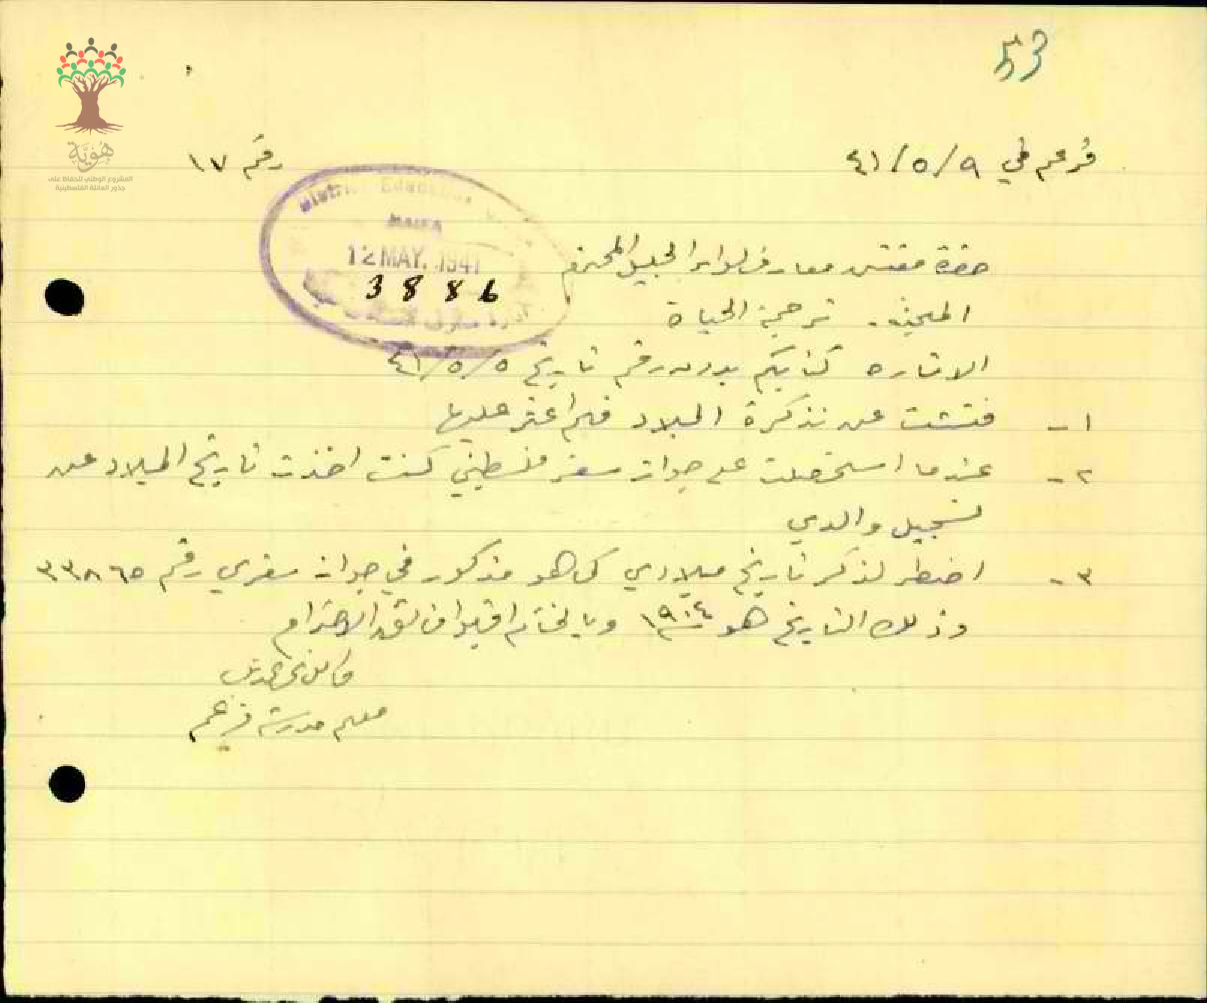 53
هوية
المشروع الوطني للحفاظ على
جذور العائلة الفلسطينية
فرعم في ٩/٥/٤١
رقم ١٧
District Education
HAIFA
12 MAY. 1941
3886
حضرة مفتش معارف لواء الجليل المحترم
ترجمة الحياة
الاشارة كتابكم بدون رقم تاريخ ٥/٥/٤١
١- فتشت عن تذكرة الميلاد فلم اعثر عليها
٢- عندما استحصلت على جواز سفر فلسطيني كنت اخذت تاريخ الميلاد عن
تسجيل والدي
٣- اضطر لذكر تاريخ ميلادي كما هو مذكور في جواز سفري رقم ٣٣٨٦٥
وذلك التاريخ هو ١٩٠٤ وبالختام اقبلوا فائق الاحترام
معلم مدرسة فرعم